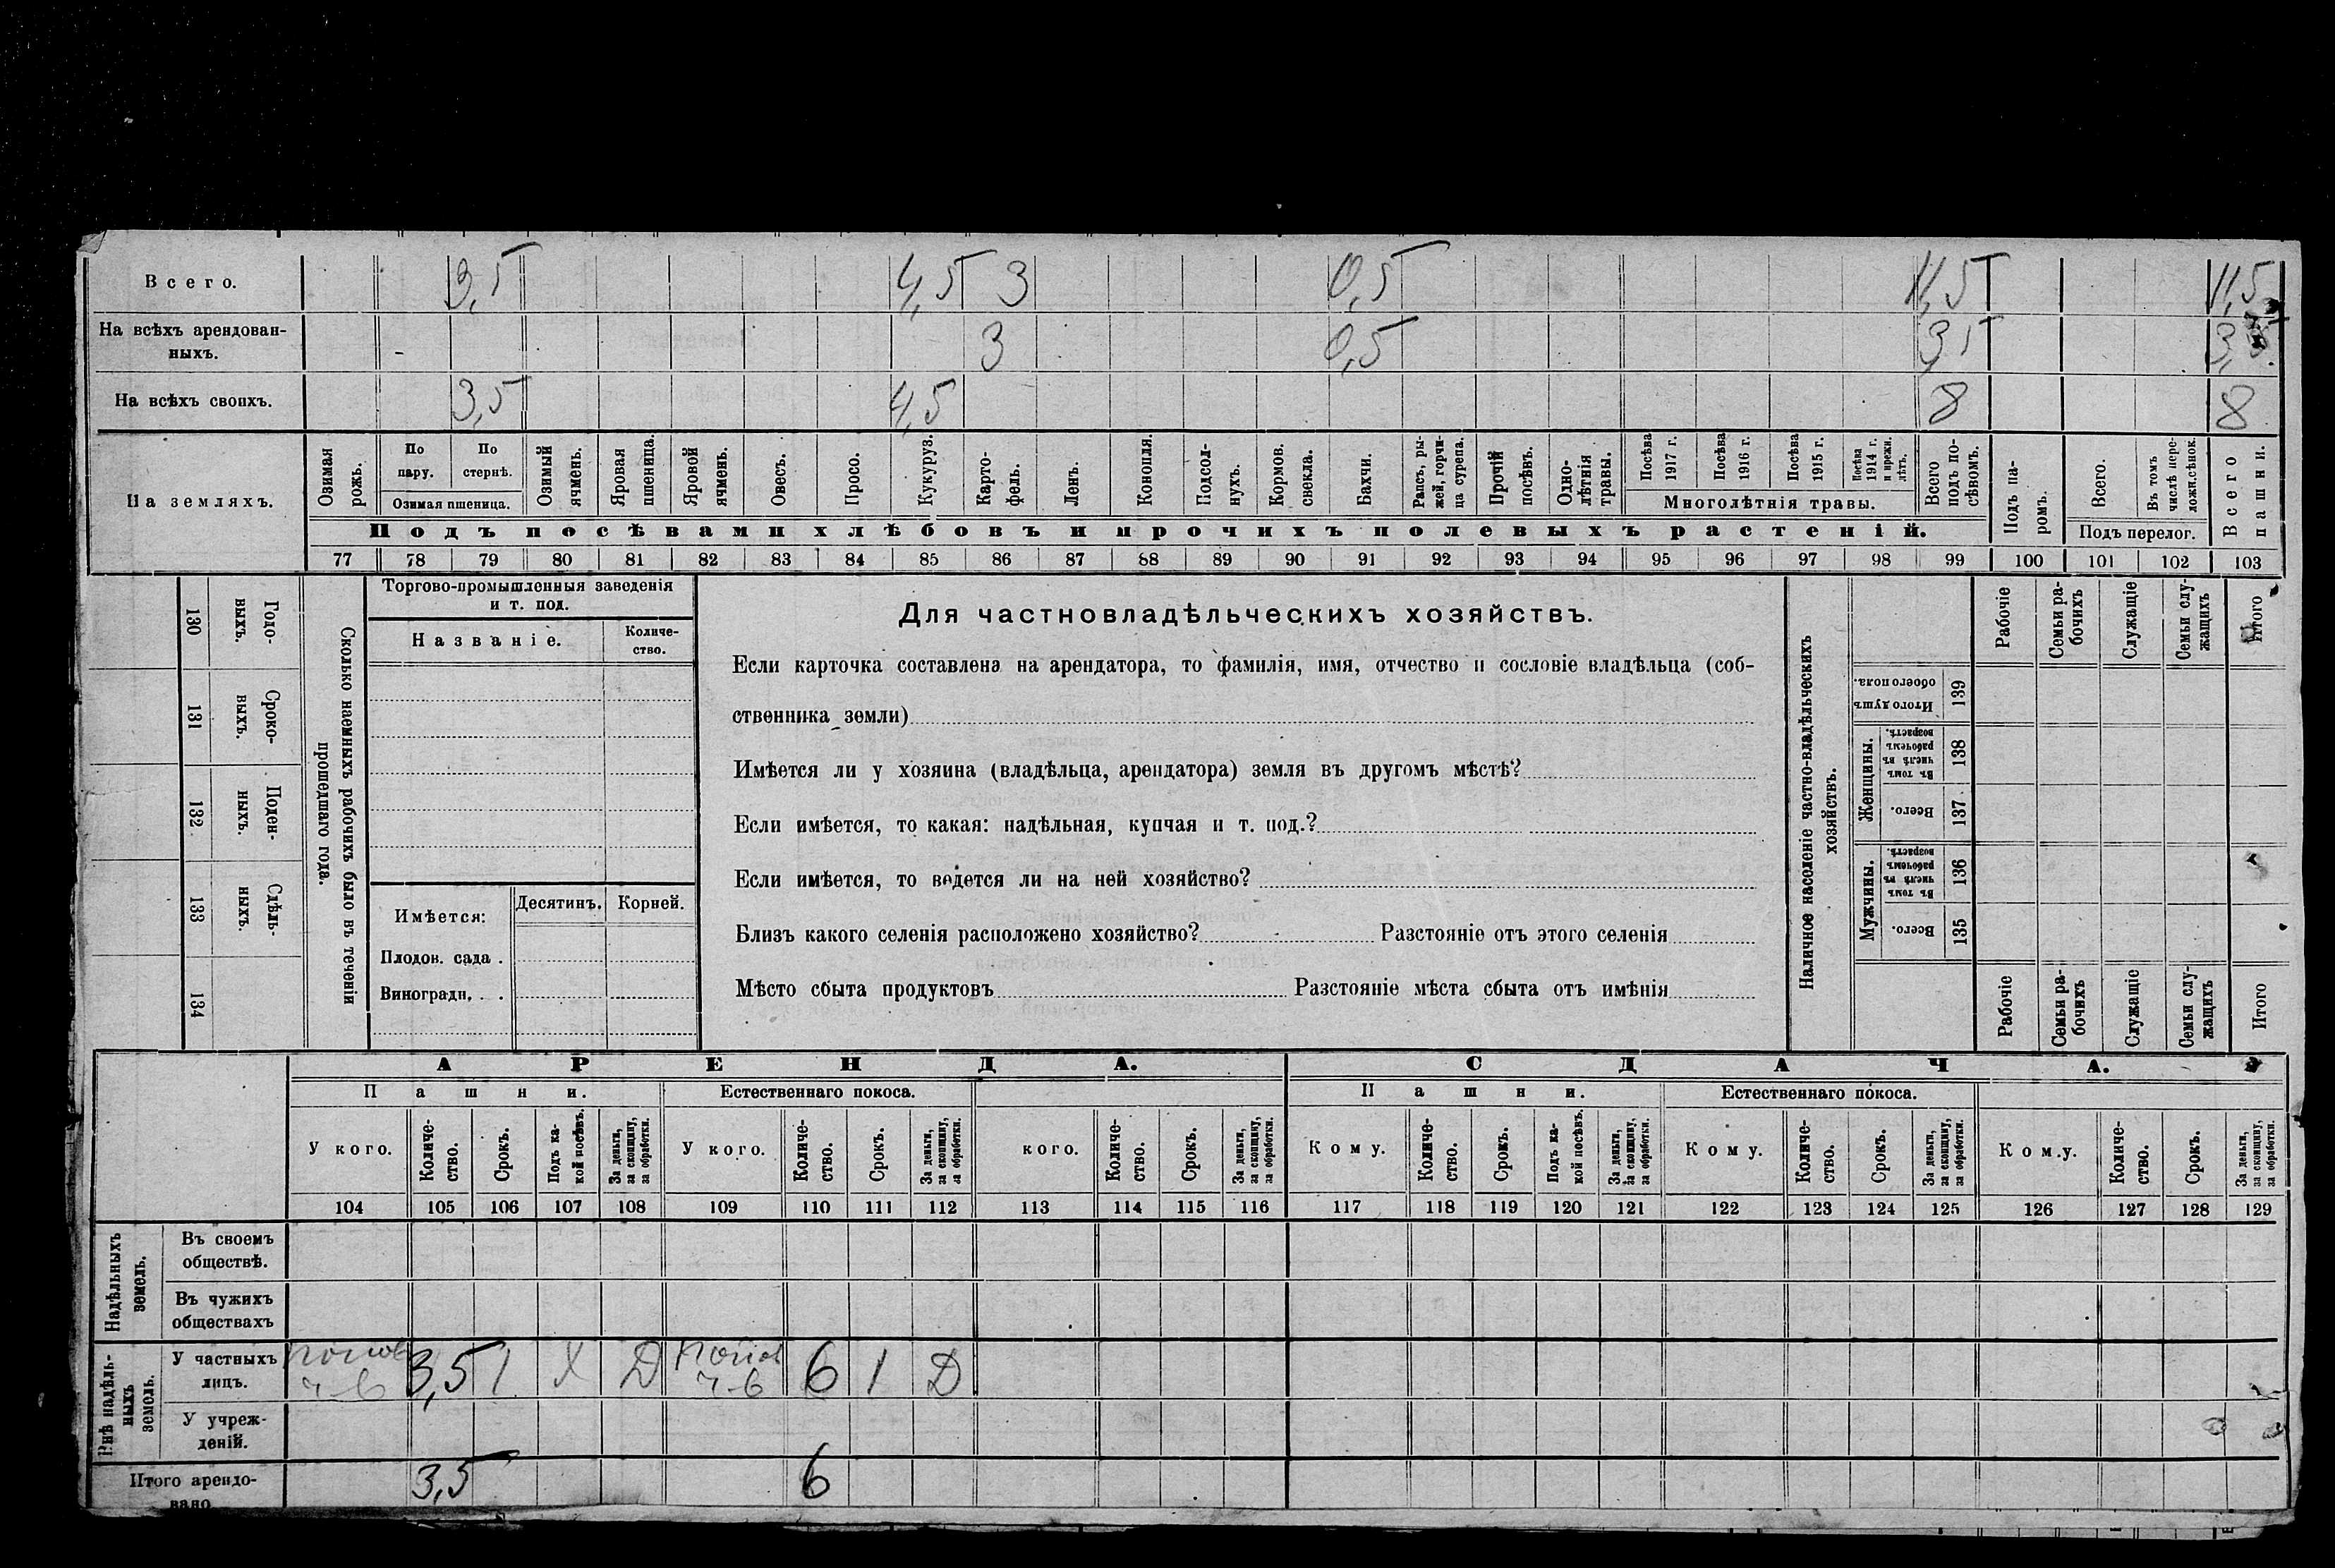 Всего. 3,5 4,5 3 0,5 11,5 11,5
На всѣхъ арендован-
ныхъ. 3 0,5 3,5 3,5
На всѣхъ своихъ. 3,5 4,5 8 8
На земляхъ.
Озимая рожь.
По пару.
По стернѣ.
Озимая пшеница.
Озимый ячмень.
Яровая пшеница.
Яровой ячмень.
Овесъ.
Просо.
Кукуруз.
Карто-
фель.
Ленъ.
Конопля.
Подсол-
нухъ.
Кормов. свекла.
Бахчи.
Рапсъ, ры-
жей, горчи-
ца сурепа.
Прочій посѣвъ.
Одно-
лѣтнія травы.
Посѣва 1917 г.
Посѣва 1916 г.
Посѣва 1915 г.
Посѣва 1914 г. и прежн. лѣтъ.
Многолѣтнія травы.
Всего подъ по-
сѣвомъ.
Подъ па-
ромъ.
Всего.
Въ томъ числѣ пере-
ложн. сѣнок.
Подъ перелог.
Всего пашни.
Подъ посѣвами хлѣбовъ и прочихъ полевыхъ растеній.
77 78 79 80 81 82 83 84 85 86 87 88 89 90 91 92 93 94 95 96 97 98 99 100 101 102 103
Сколько наемныхъ рабочихъ было въ теченіи
прошедшаго года.
Годо-
выхъ.
130
Сроко-
выхъ.
131
Поден-
ныхъ.
132
Сдѣль-
ныхъ.
133
134
Торгово-промышленныя заведенія
и т. под.
Названіе.
Количе-
ство.
Имѣется:
Десятинъ. Корней.
Плодов. сада .
Виноградн. . .
Для частновладѣльческихъ хозяйствъ.
Если карточка составлена на арендатора, то фамилія, имя, отчество и сословіе владѣльца (соб-
ственника земли)
Имѣется ли у хозяина (владѣльца, арендатора) земля въ другомъ мѣстѣ?
Если имѣется, то какая: надѣльная, купчая и т. под.?
Если имѣется, то ведется ли на ней хозяйство?
Близъ какого селенія расположено хозяйство? Разстояніе отъ этого селенія
Мѣсто сбыта продуктовъ Разстояніе мѣста сбыта отъ имѣнія
Наличное населеніе частно-владѣльческихъ
хозяйствъ.
Рабочіе
Семьи ра-
бочихъ
Служащіе
Семьи слу-
жащихъ
Итого
Итого душъ обоего пола.
139
Женщины.
Въ томъ числѣ въ рабочемъ возрастѣ.
138
Всего.
137
Мужчины.
Въ томъ числѣ въ рабочемъ возрастѣ.
136
Всего.
135
Рабочіе
Семьи ра-
бочихъ
Служащіе
Семьи слу-
жащихъ
Итого
АРЕНДА. СДАЧА.
Пашни. Естественнаго покоса. Пашни. Естественнаго покоса.
У кого.
Количе-
ство.
Срокъ.
Подъ ка-
кой посѣвъ.
За деньги, за скопщину, за обработки.
У кого.
Количе-
ство.
Срокъ.
За деньги, за скопщину, за обработки.
кого.
Количе-
ство.
Срокъ.
За деньги, за скопщину, за обработки.
Кому.
Количе-
ство.
Срокъ.
Подъ ка-
кой посѣвъ.
За деньги, за скопщину, за обработки.
Кому.
Количе-
ство.
Срокъ.
За деньги, за скопщину, за обработки.
Кому.
Количе-
ство.
Срокъ.
За деньги, за скопщину, за обработки.
104 105 106 107 108 109 110 111 112 113 114 115 116 117 118 119 120 121 122 123 124 125 126 127 128 129
Надѣльныхъ земель.
Въ своемъ
обществѣ.
Въ чужихъ
обществахъ
Внѣ надѣль-
ныхъ земель.
У частныхъ
лицъ. 3,5 1 Х Д 6 1 Д
У учреж-
деній.
Итого арендо-
вано 3,5 6